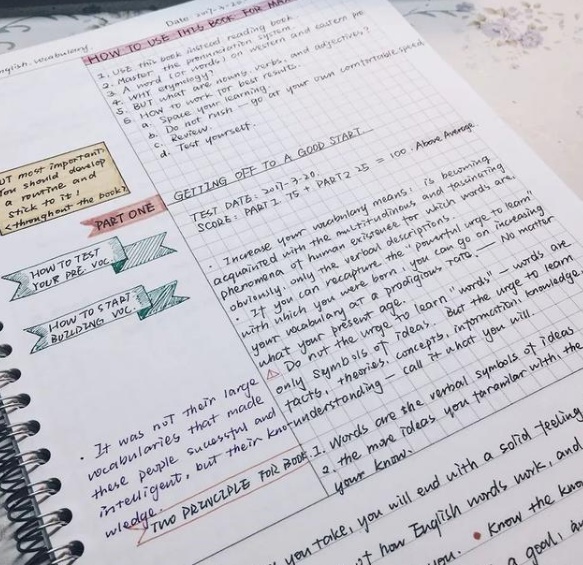 Date: 2017-3-20.
English. vocabulary.
HOW TO USE THIS BOOK FOR
1. USE this book instead reading book.
2. Master the pronunciation system.
3. A word (or words) on western and eastern
4. WHY etymology?
5. BUT what are nouns, verbs, and adjectives?
6. HOW to work for best results.
a. Space your learning.
b. Do not rush — go at your own comfortable speed
c. Review.
d. Test yourself.
most important
You should develop
a routine and
stick to it!
<throughout the book>
PART ONE
HOW TO TEST
YOUR PRE VOC.
HOW TO START
BUILDING VOC.
GETTING OFF TO A GOOD START.
TEST DATE: 2017-3-20.
SCORE: PART1 75 + PART2 25 = 100. Above Average.
· Increase your vocabulary means, is becoming
acquainted with the multitudinous and fascinating
phenomena of human existence for which words are,
obviously, only the verbal descriptions.
· If you can recapture the "powerful urge to learn"
with which you were born, you can go on increasing
your vocabulary at a prodigious rate. — No matter
what your present age.
Do not the urge to learn "words" — words are
only symbols of ideas. But the urge to learn
facts, theories, concepts, information, knowledge,
understanding — call it what you will.
· It was not their large
vocabularies that made
these people sucessful and
intelligent, but their kno-
wledge.
TWO PRINCIPLE FOR BOOK.
1. Words are the verbal symbols of ideas
2. the more ideas you faramilar with, the
your know.
you take, you will end with a solid feeling
how English words work, and
you. • Know the
a goal,